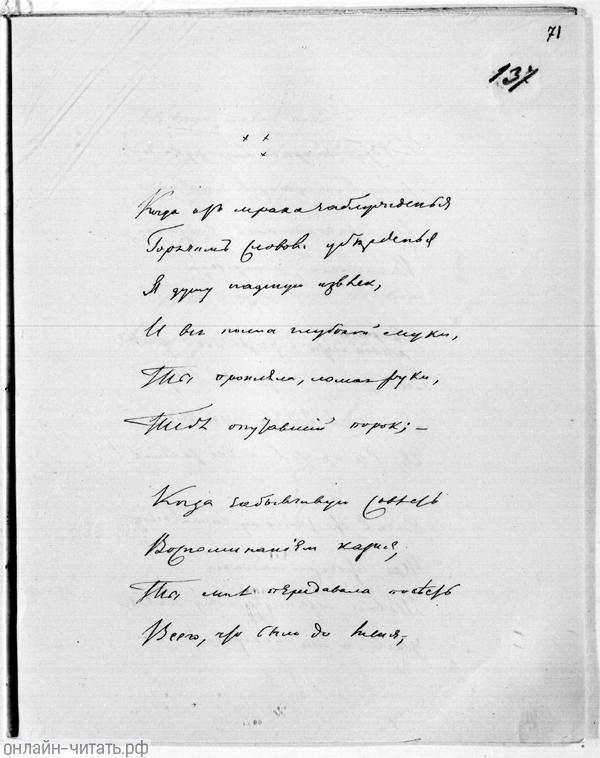 71
137
× ×
×
Когда изъ мрака заблужденья
Горячимъ словомъ убѣжденья
Я душу падшую извлек,
И вся полна глубокой муки,
Ты прокляла, ломая руки,
Тебя опутавшій порок; —
Когда забывчивую совѣсть
Воспоминаніем казня,
Ты мнѣ передавала повѣсть
Всего, что было до меня, —
онлайн-читать.рф